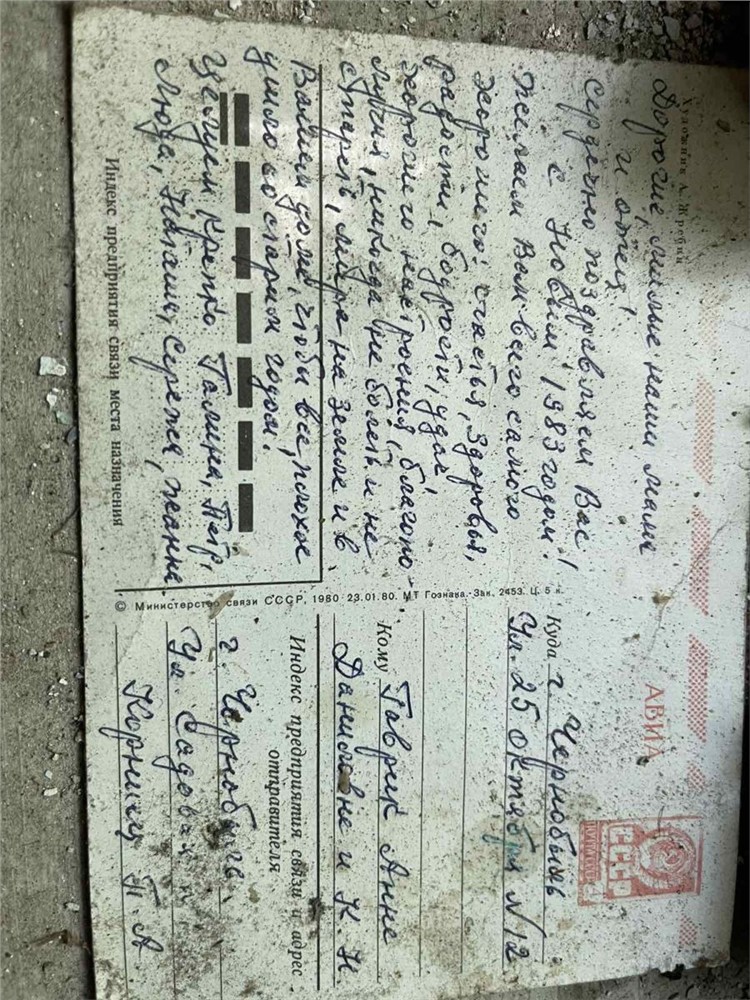 Художник А. Жребин
Дорогие, милые наши мама
и отец!
Сердечно поздравляем Вас
с Новым 1983 годом!
Желаем Вам всего самого
хорошего: счастья, здоровья,
радости, бодрости, удач,
хорошего настроения, благопо-
лучия, никогда не болеть и не
стареть, мира на земле и в
Вашем доме, чтобы все плохое
ушло со старим годом.
Целуем крепко Галина, Петр,
Люда, Наташа, Сережа, Жанна.
Индекс предприятия связи места назначения
© Министерство связи СССР, 1980 23.01.80. МТ Гознака. Зак. 2453. Ц. 5 к.
АВИА
ПОЧТА
СССР
Куда г. Чернобыль
Ул. 25 октября N 12
Кому Гаврик Анне
Даниловне и К. Н.
Индекс предприятия связи и адрес
отправителя
г. Чернобыль
Ул. Садовая
Корниец П. А